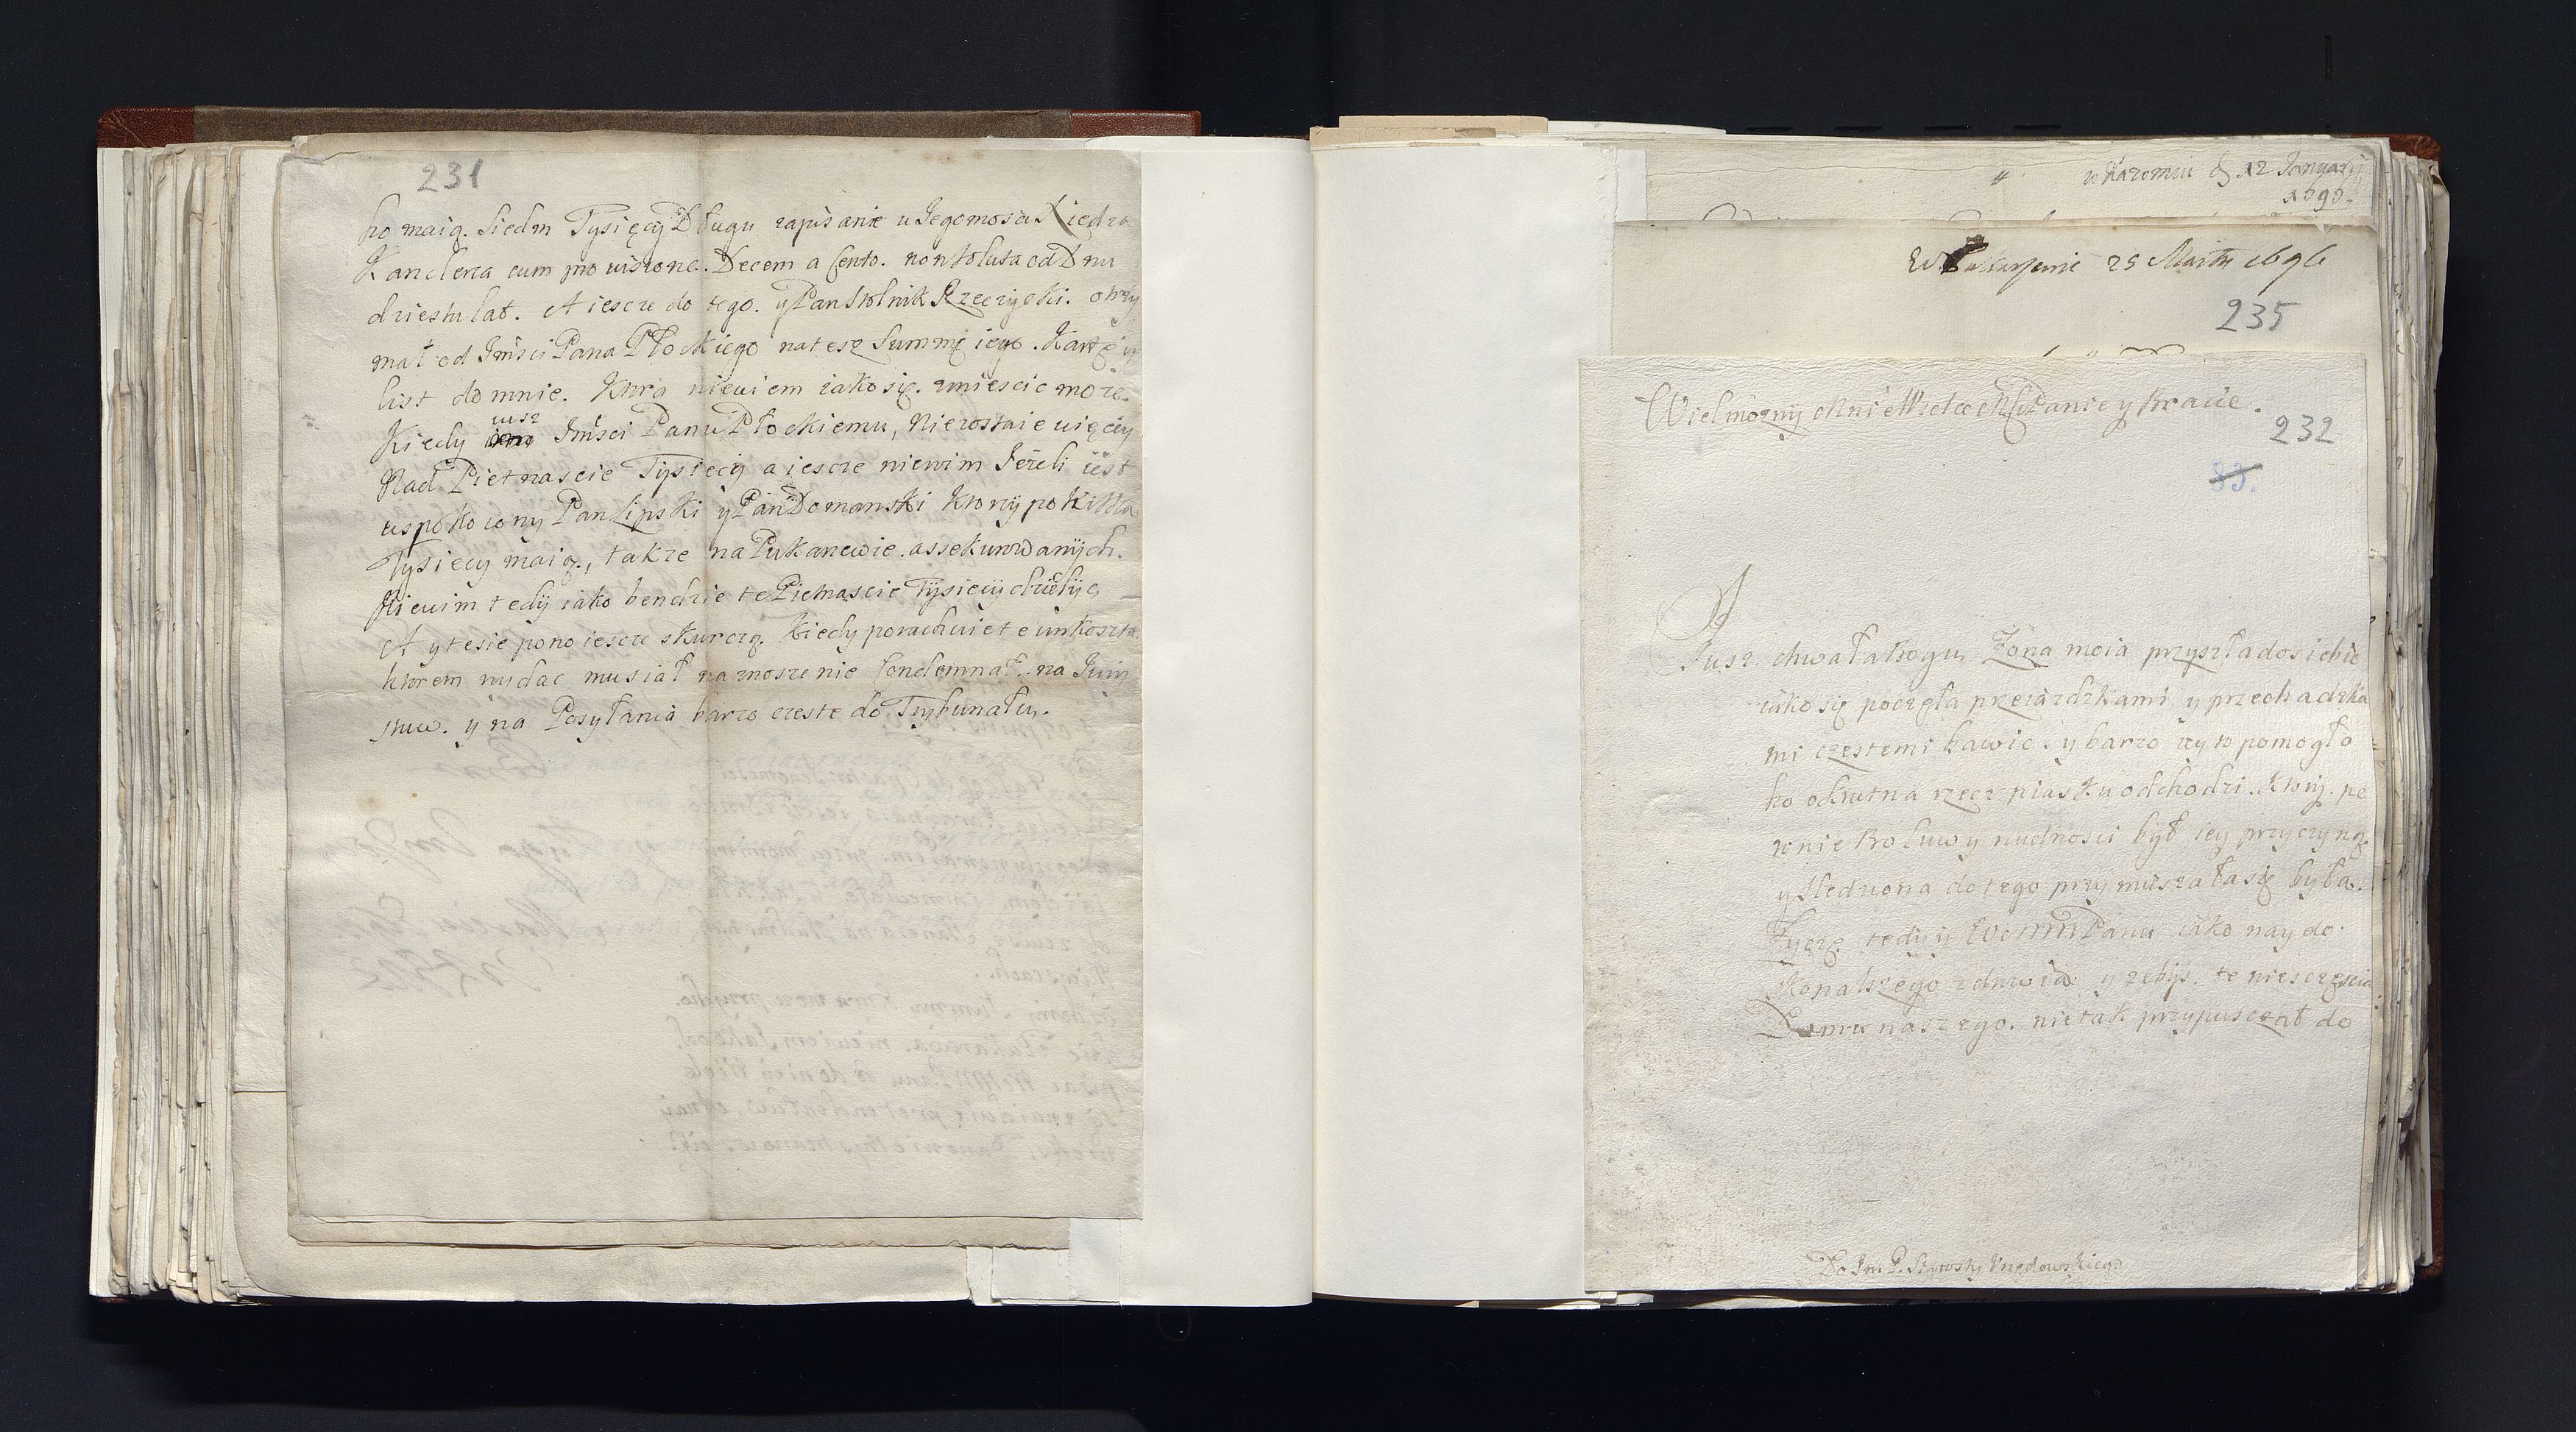 231
ho maią. Siedm Tysięcÿ Długu zapisanie u Jegomosci Xiędza
Kanclerza cum prowisione. Decem a Cento. non soluta od Dwu
dziestu lat. A iescze do tego. ÿ Pan Stolnik Rzeczÿcki. otrzy
mał od Jmsci Pana Płockiego na tesz Summę iego. Kartę ÿ
list do mnie. Ktura niewiem iako się. zmiescic może.
Kiedy iusz Jmsci Panu Płockiemu, Nie zostaie więcÿ
Nad Pietnascie Tysiecÿ a iescze niewim Jeżeli iest
uspokoiony Pan Lipski ÿ Pan Domanski Ktorÿ po Kilka
Tysiecy maią, takze na Pukanewie. assekurowanÿch.
Niewim tedÿ iako bendzie te Pietnascie Tÿsiecÿ dzielÿć
A y te sie pono iescze skurczą. Kiedy porachuie te unkoszta
kturem wydac musiał na znoszenie Condemnat. na Jurÿ
stuw. y na Posyłania barzo czeste do Trybunału.
w Karemiu D 12 Januarÿ
1698.
25 Martii 1696
235
Wielmożnÿ Mnie Wielce Mśc Panie y Bracie.
232
83.
Jusz chwała Bogu, Żona moia przyszła do siebie
iako się poczęła przeiazdzkami y przechadzka
mi czestemi bawic. y barzo ieÿ to pomogło
bo okrutna rzecz piasku odchodzi. Ktorÿ. pe
wnie Boluw y nudnosci był iey przyczyną.
y Sledziona do tego przymieszała się była.
Życzę tedÿ ÿ WMM Panu iako naÿ do
skonalszego zdrowia. y zebÿs. te niesczęscia
Domu naszego. nie tak przypusczał do
Do Jm P. Starosty Urzędowskiego